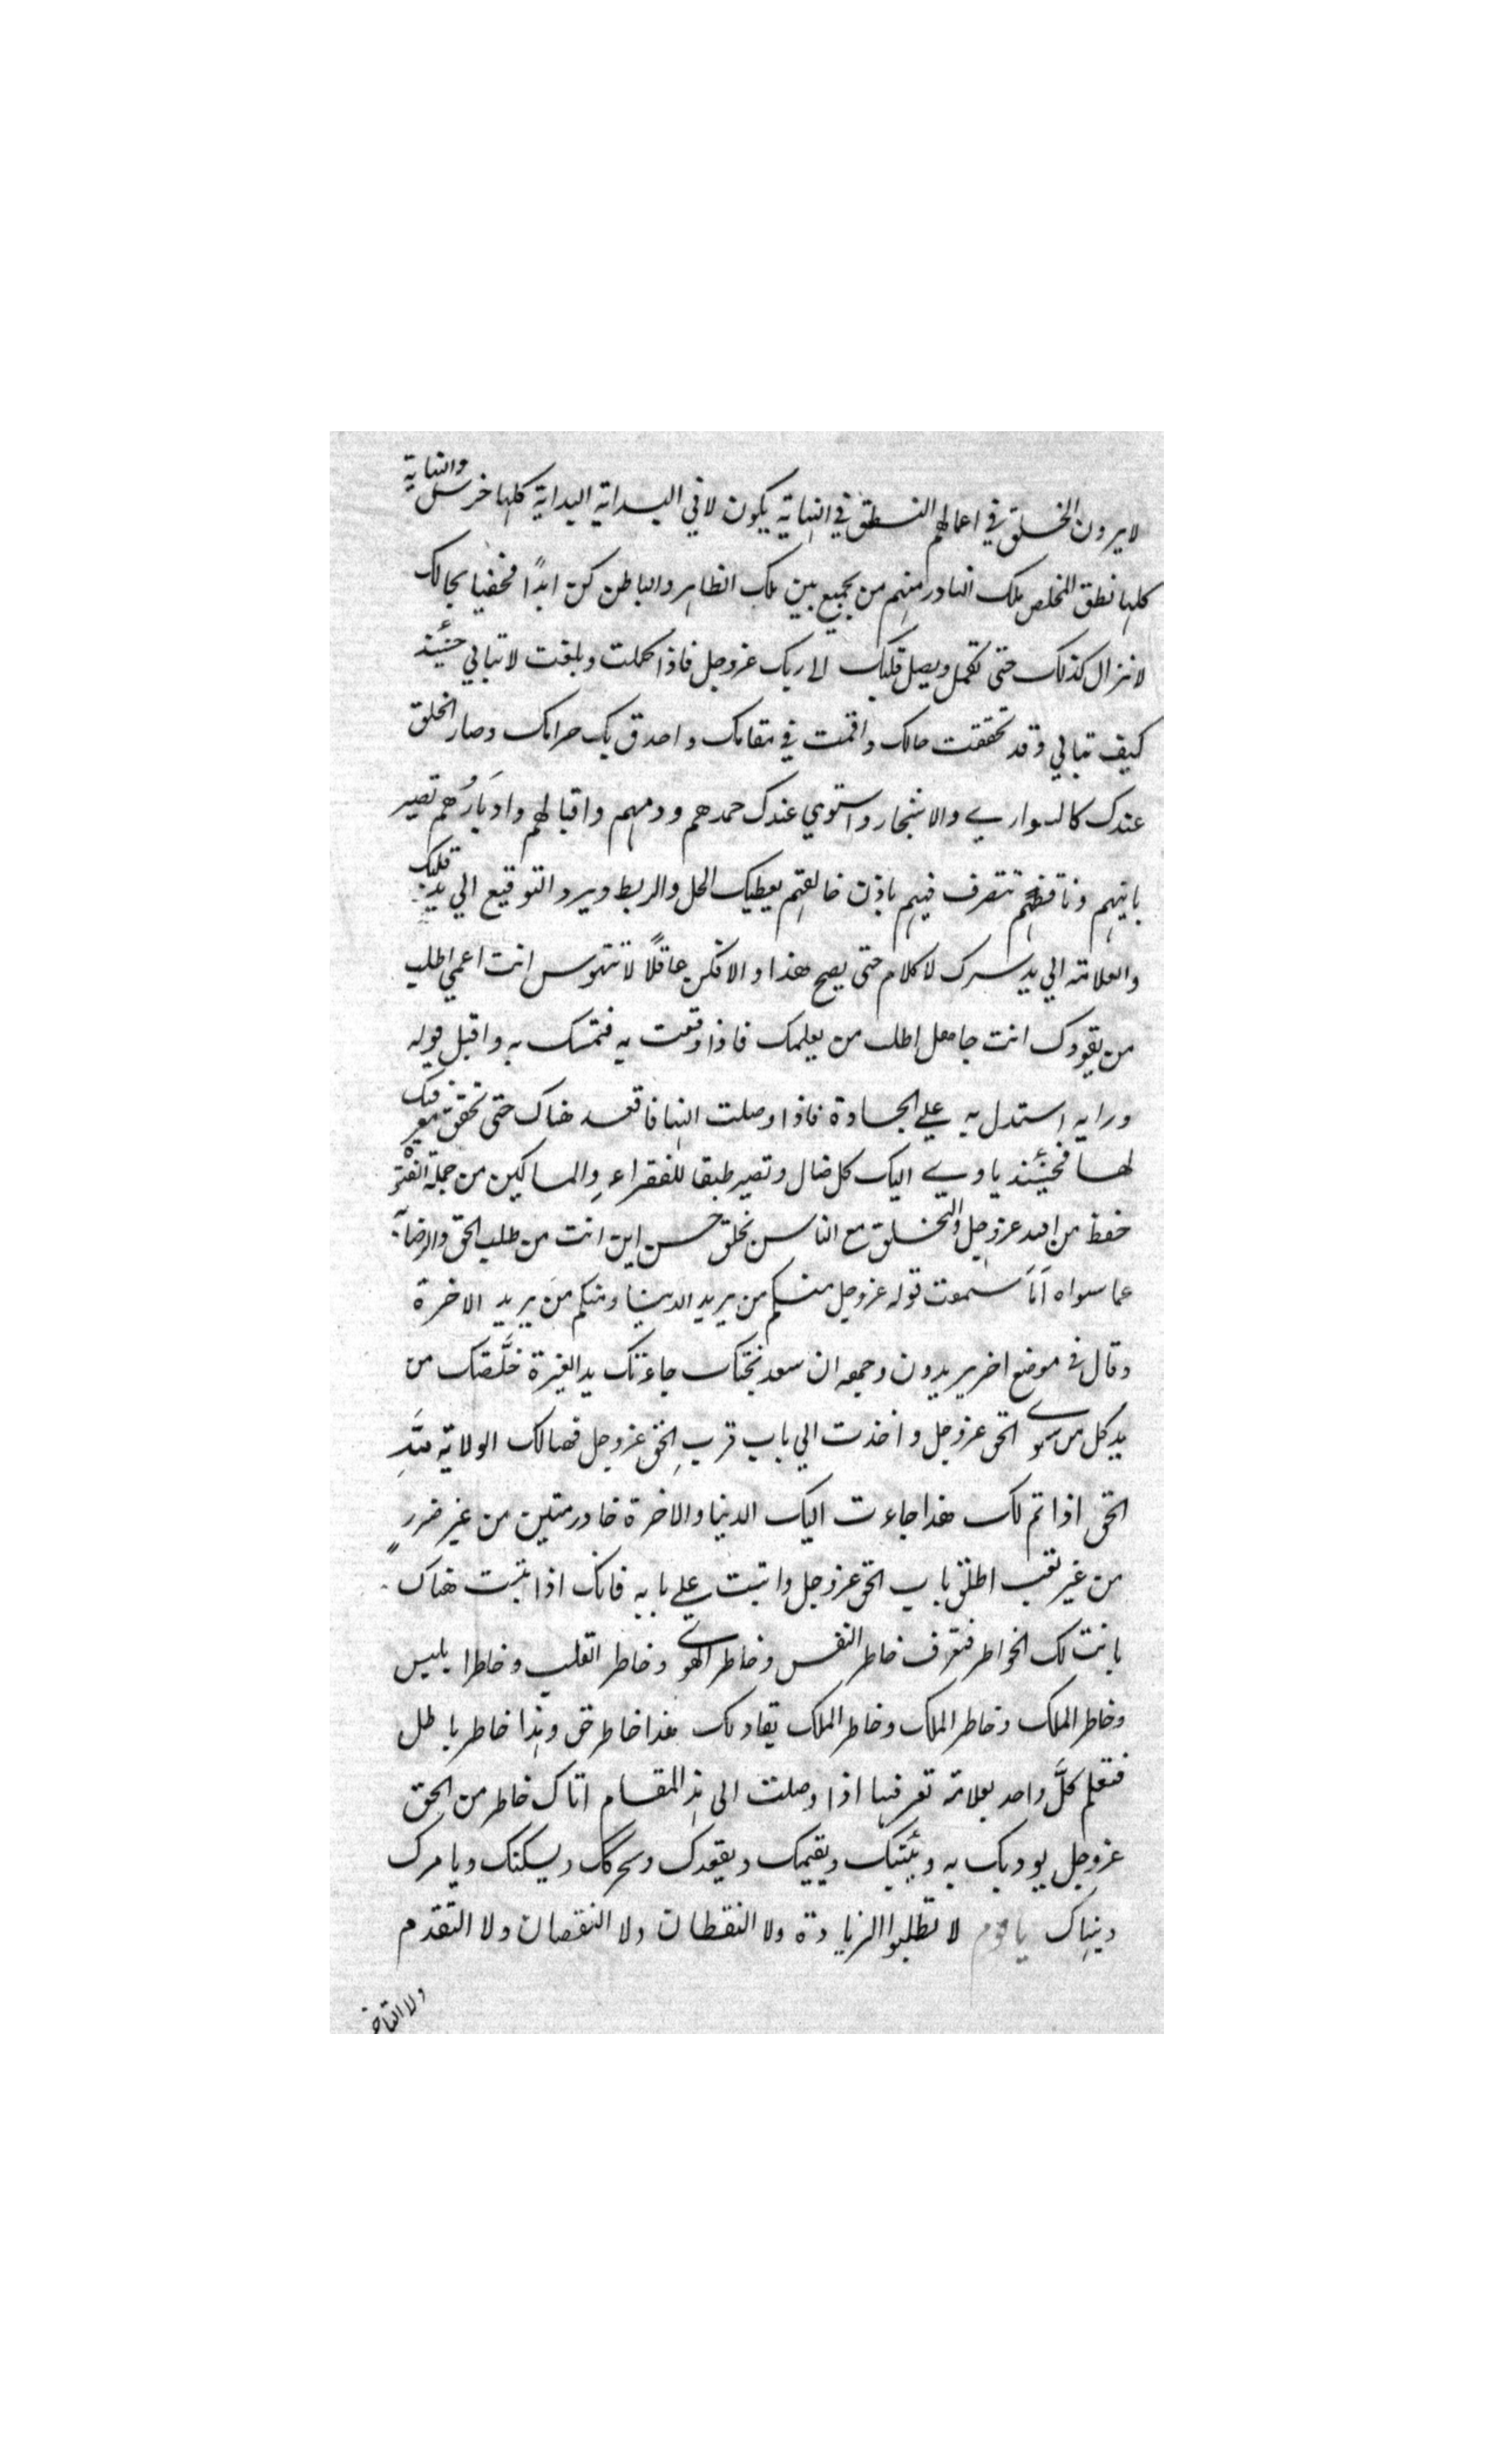 لا يرون الخلق في اعمالهم النطق في النهاية يكون لا في البداية البداية كلها خرس والنهاية
كلها نطق المخلص ملك النادر منهم من يجمع بين ملك الظاهر والباطن كن ابدًا مخفيا بحالك
لا تزال كذلك حتى تكمل ويصل قلبك الى ربك عزوجل فاذا كملت وبلغت لا تبالي حينئذ
كيف تبالي وقد تحققت حالك واقمت في مقامك واحدق بك حراسك وصار الخلق
عندك كالسواري والاشجار واستوي عندك حمدهم وذمهم واقبالهم وادبَارُهم تصير
بانيهم وناقضهم تتصرف فيهم باذن خالقهم يعطيك الحل والربط ويرد التوقيع الي يد قلبك
والعلامة الي يد سرك لا كلام حتى يصح هذا والا فكن عاقلًا لا تتهوس انت اعمي اطلب
من يقودك انت جاهل اطلب من يعلمك فاذا وقعت به فتمسك به واقبل قوله
ورايه استدل به علي الجادة فاذا وصلت اليها فاقعد هناك حتى تحقق معرفتك
لها فحينئذ ياوي اليك كل ضال وتصير طبقا للفقراء والمساكين من جملة الفتوة
حفظ سر الله عزوجل والتخلق مع الناس بخلق حسن اين انت من طلب الحق والرضاء
عما سواه اَمَا سمعت قوله عزوجل منكم من يريد الدنيا ومنكم مَن يريد الاخرة
وقال في موضع اخر يريدون وجهه ان سعد بختك جاءتك يد الغيرة خلَّصتك من
يد كل من سوي الحق عزوجل واخذت الي باب قرب الحق عزوجل فهنالك الولاية للّهِ
الحق اذا تم لك هذا جاءت اليك الدنيا والاخرة خادمتين من غير ضررٍ
من غير تعب اطلق باب الحق عزوجل واثبت علي بابه فانك اذا ثبت هناك
بانت لك الخواطر فتعرف خاطر النفس وخاطر الهوي وخاطر القلب وخاطر ابليس
وخاطر الملك وخاطر الملك وخاطر الملك يقال لك هذا خاطر حق وهذا خاطر باطل
فتعلم كلَّ واحد بعلامة تعرفها اذا وصلت الى هذا المقام اتاك خاطر من الحق
عزوجل يودبك به ويثبتك ويقيمك ويقعدك ويحركك ويسكنك ويامرك
وينهاك يا قوم لا تطلبوا الزيادة ولا النقطان ولا النقصان ولا التقدم
ولا التاخر